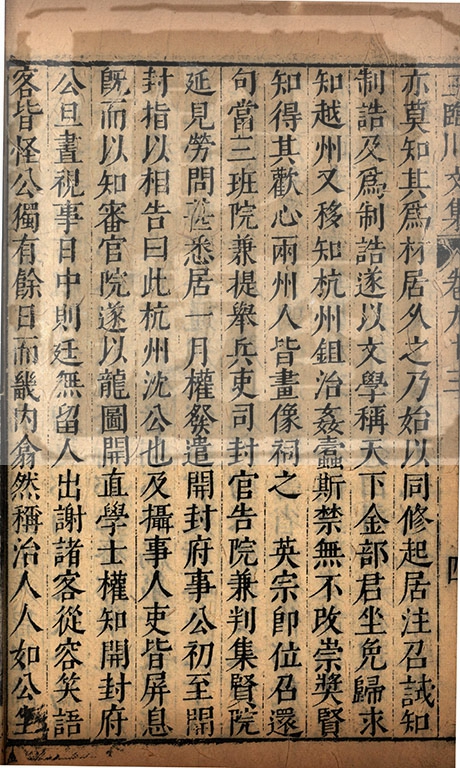 王臨川文集 卷九十三 四
亦莫知其爲材居久之乃始以同修起居注召試知
制誥及爲制誥遂以文學稱天下金部君坐免歸求
知越州又移知杭州鉏治姦蠹斯禁無不改崇奬賢
知得其歡心兩州人皆畫像祠之 英宗卽位召還
句當三班院兼提舉兵吏司封官告院兼判集賢院
延見勞問甚悉居一月權發遣開封府事公初至開
封指以相告曰此杭州沈公也及攝事人吏皆屏息
旣而以知審官院遂以龍圖閣直學士權知開封府
公旦晝視事日中則廷無留人出謝諸客從容笑語
客皆怪公獨有餘日而畿內翕然稱治人人如公坐